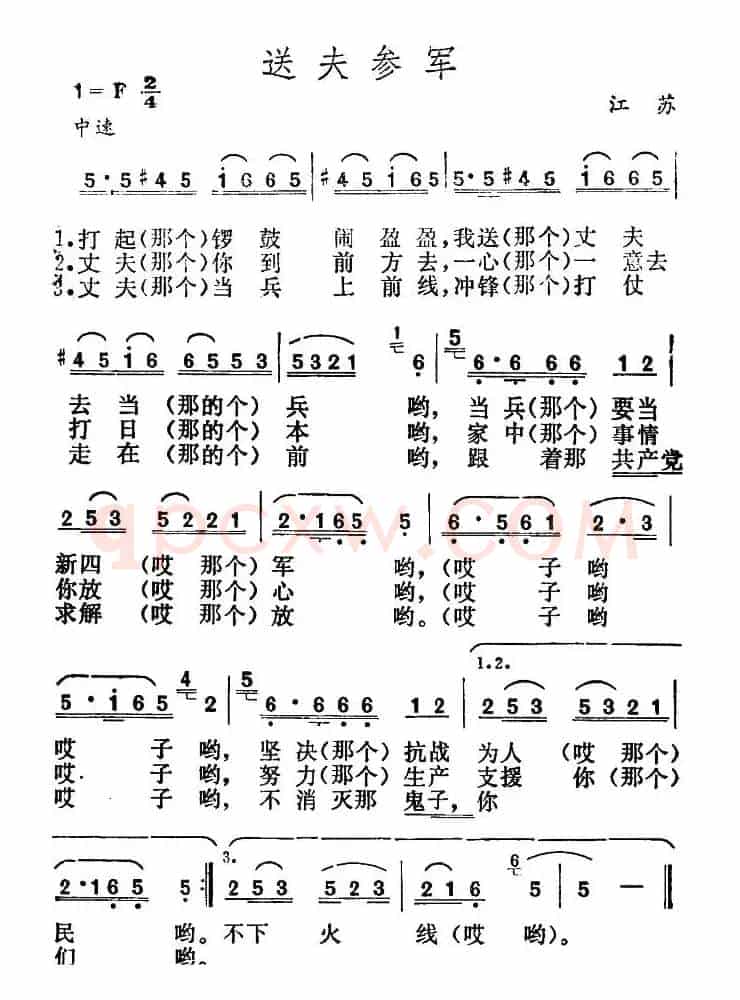 送夫参军
1=F 2/4
江苏
中速
5·5#45 i665 #45i65 5·5#45 i665
1.打起(那个)锣鼓 闹盈盈,我送(那个)丈夫
2.丈夫(那个)你到 前方去,一心(那个)一意去
3.丈夫(那个)当兵 上前线,冲锋(那个)打仗
#45i6 6553 5321 1 6 5 6·666 12
去当(那的个)兵 哟,当兵(那个)要当
打日(那的个)本 哟,家中(那个)事情
走在(那的个)前 哟,跟着那 共产党
253 5221 2·165 5 6·561 2·3
新四(哎那个)军 哟,(哎子哟
你放(哎那个)心 哟,(哎子哟
求解(哎那个)放 哟。(哎子哟
1.2.
5·i65 4 2 5 6·666 12 253 5321
哎子哟,坚决(那个)抗战为人(哎那个)
哎子哟,努力(那个)生产支援你(那个)
哎子哟,不消灭那 鬼子,你
3.
2·165 5 253 523 216 6 5 5 —
民 哟。不下火线(哎哟)。
们 哟。
qpcxw.com